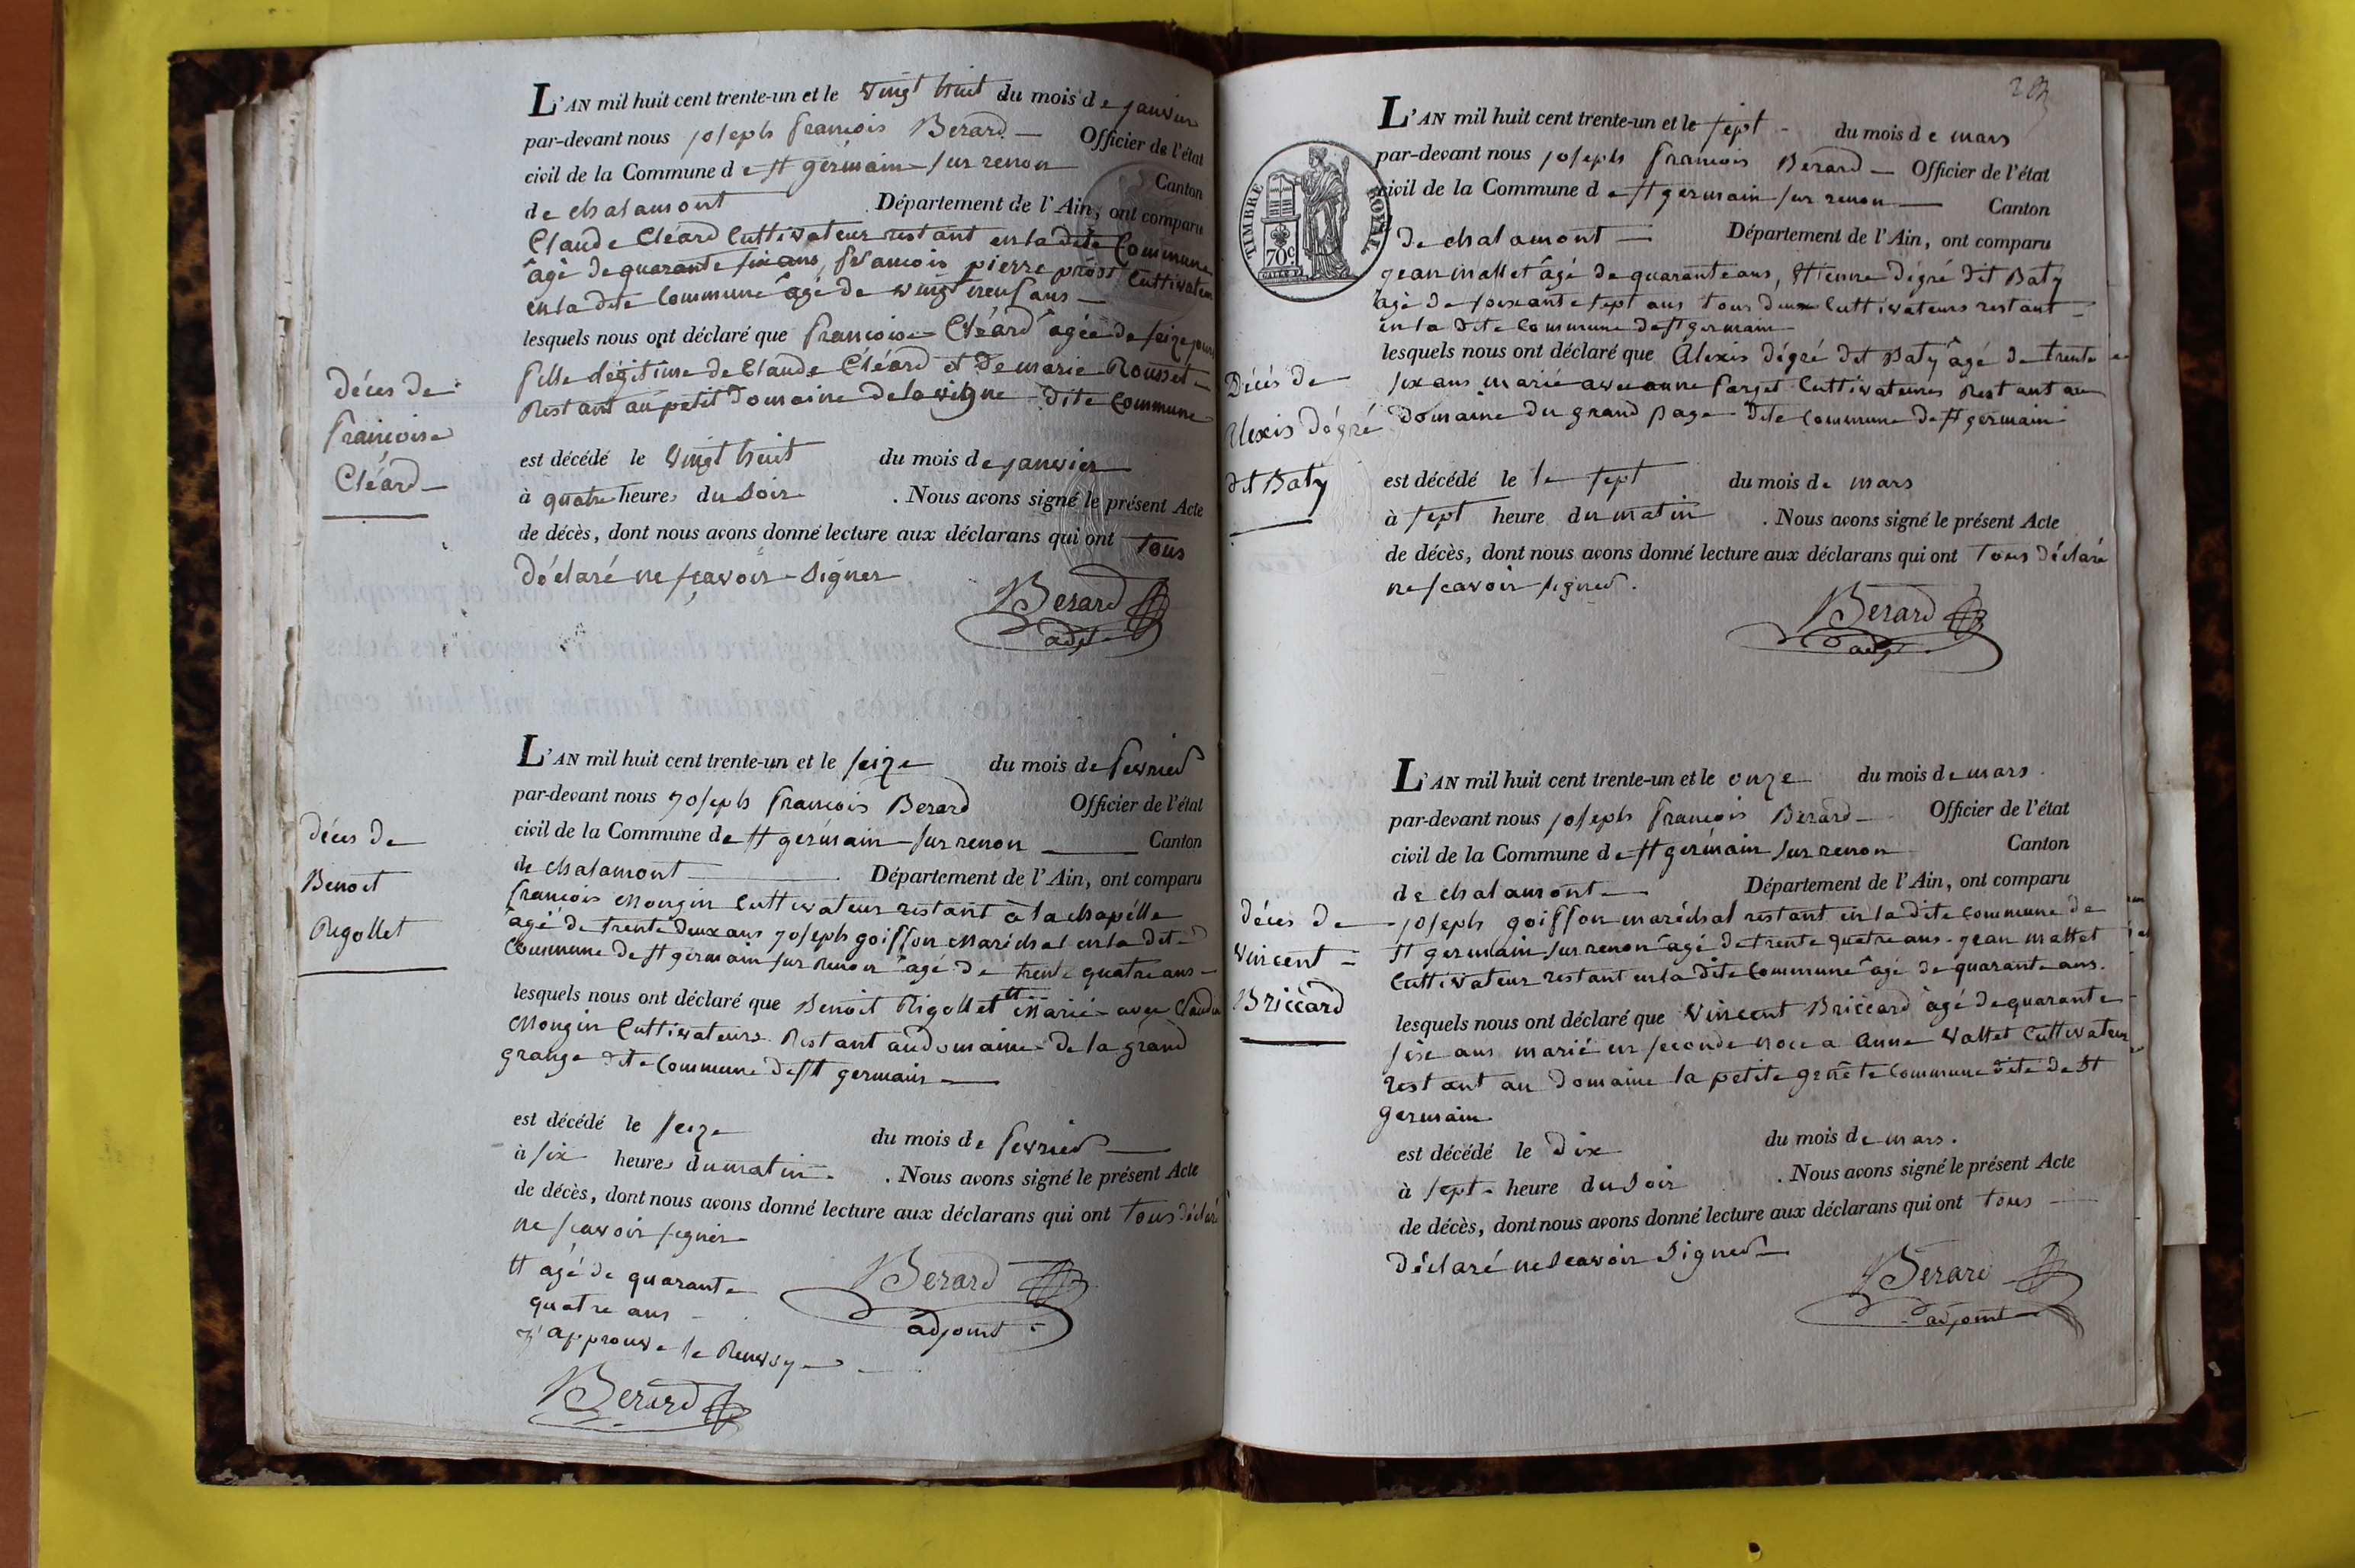 L'AN mil huit cent trente-un et le vingt huit du mois de janvier
par-devant nous joseph francois Berard — Officier de l'état
civil de la Commune de st germain sur renon Canton
de chalamont Département de l'Ain, ont comparu
Claude Cléard Cultivateur restant en la dite Commune
âgé de quarante six ans, francois pierre prost Cultivateur
en la dite Commune âgé de vingt neuf ans —
lesquels nous ont déclaré que francoise Cléard âgée de seize jours
fille légitime de Claude Cléard et de marie Rousset —
Restant au petit domaine de la vigne dite Commune
décès de
francoise
Cléard —
est décédé le vingt huit du mois de janvier
à quatre heures du soir . Nous avons signé le présent Acte
de décès, dont nous avons donné lecture aux déclarans qui ont tous
déclaré ne sçavoir signer
Berard
adjt
L'AN mil huit cent trente-un et le seize du mois de fevrier
par-devant nous joseph francois Berard Officier de l'état
civil de la Commune de st germain sur renon — Canton
de chalamont — Département de l'Ain, ont comparu
francois Mongin Cultivateur restant à la chapelle
âgé de trente deux ans joseph goiffon Maréchal en la dite
Commune de st germain sur Renon âgé de trente quatre ans —
décès de
Benoit
Rigollet
lesquels nous ont déclaré que Benoit Rigollet tt Marié avec Claudine
Mongin Cultivateurs Restant au domaine de la grand
grange dite Commune de st germain —
est décédé le seize du mois de fevrier —
à six heures du matin . Nous avons signé le présent Acte
de décès, dont nous avons donné lecture aux déclarans qui ont tous déclaré
ne scavoir signer
tt agé de quarante
quatre ans —
j'approuve le Renvoy —
Berard
adjoint
Berard
203
L'AN mil huit cent trente-un et le sept - du mois de mars
par-devant nous joseph francois Berard — Officier de l'état
civil de la Commune de st germain sur renon — Canton
de chalamont — Département de l'Ain, ont comparu
TIMBRE ROYAL
70c.
jean mallet âgé de quarante ans, Etienne dégré dit Baty
âgé de soixante sept ans tous deux Cultivateurs restant —
en la dite Commune de st germain
lesquels nous ont déclaré que Alexis dégré dit Baty âgé de trente
six ans marié avec anne farget Cultivateurs Restant au
domaine du grand page dite Commune de st germain
Décès de
Alexis dégré
dit Baty
est décédé le le sept du mois de mars
à sept heure du matin . Nous avons signé le présent Acte
de décès, dont nous avons donné lecture aux déclarans qui ont tous déclaré
ne scavoir signer.
Berard
adjt
L'AN mil huit cent trente-un et le onze du mois de mars
par-devant nous joseph francois Berard — Officier de l'état
civil de la Commune de st germain sur renon Canton
de chalamont — Département de l'Ain, ont comparu
joseph goiffon maréchal restant en la dite Commune de
st germain sur renon âgé de trente quatre ans - jean mallet
Cultivateur restant en la dite Commune âgé de quarante ans.
décès de
Vincent
Briccard
lesquels nous ont déclaré que Vincent Briccard âgé de quarante
six ans marié en seconde noce a Anne Vallet Cultivateur
restant au domaine la petite genête Commune dite de St
germain
est décédé le dix du mois de mars.
à sept heure du soir . Nous avons signé le présent Acte
de décès, dont nous avons donné lecture aux déclarans qui ont tous —
déclaré ne scavoir signer —
Berard
adjoint